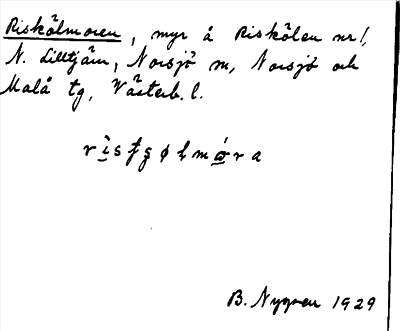 Riskölmoren, myr å Riskölen nr 1,
N. Lilltjärn, Norsjö m, Norsjö och
Malå tg, Västerb. l.
B. Nygren 1929